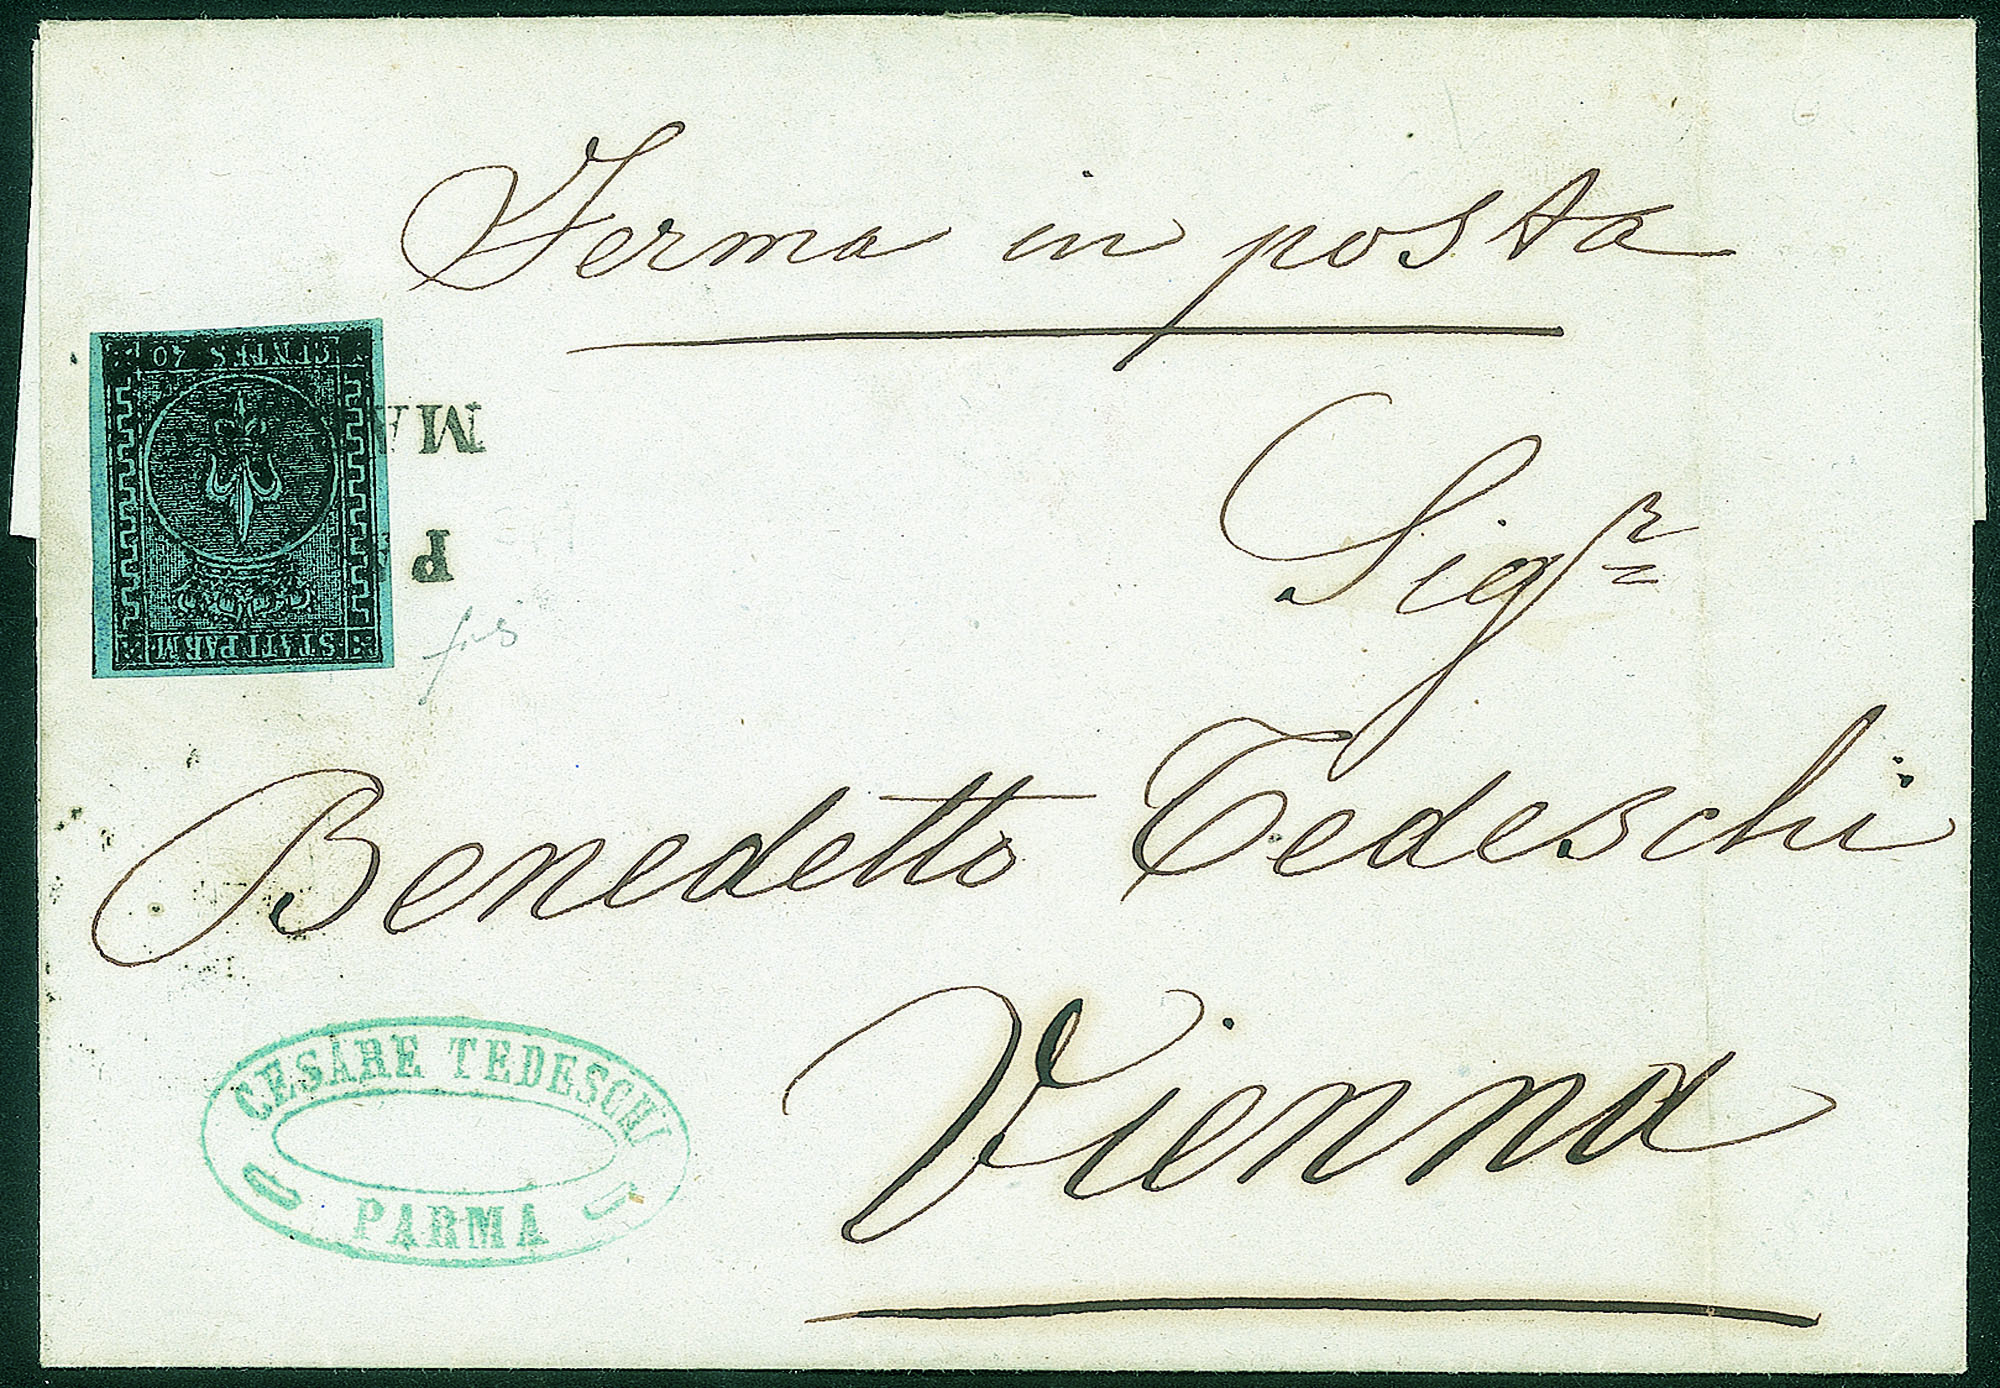 Ferma in posta
CENTES 40
Sigr
STATI PARM
Benedetto Tedeschi
Vienna
CESARE TEDESCHI
PARMA